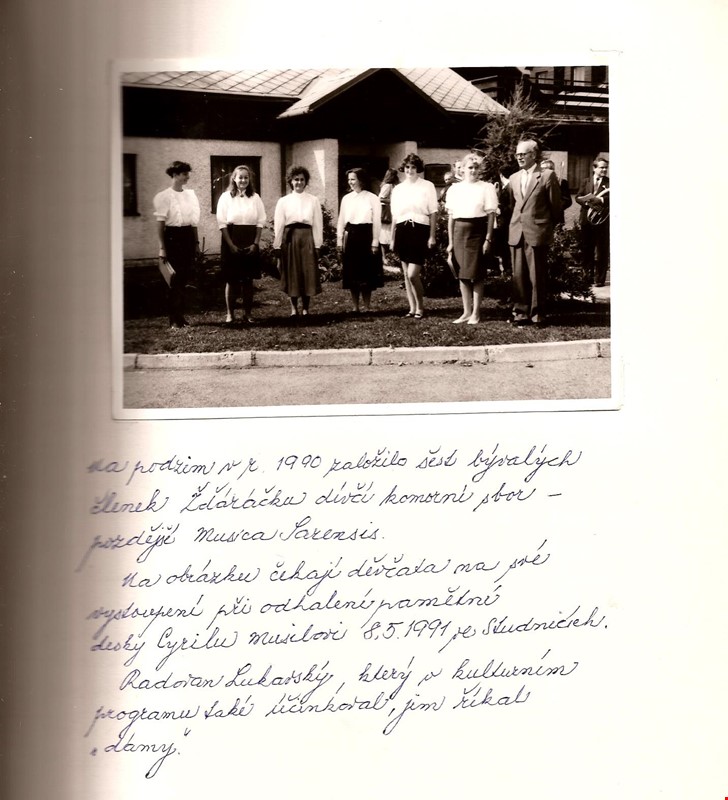 Na podzim v r. 1990 založilo šest bývalých
členek Žďáráčku dívčí komorní sbor –
pozdější Musica Sarensis.
Na obrázku čekají děvčata na své
vystoupení při odhalení pamětní
desky Cyrilu Musilovi 8.5.1991 ve Studnicích.
Radovan Lukavský, který v kulturním
programu také účinkoval, jim říkal
„dámy".